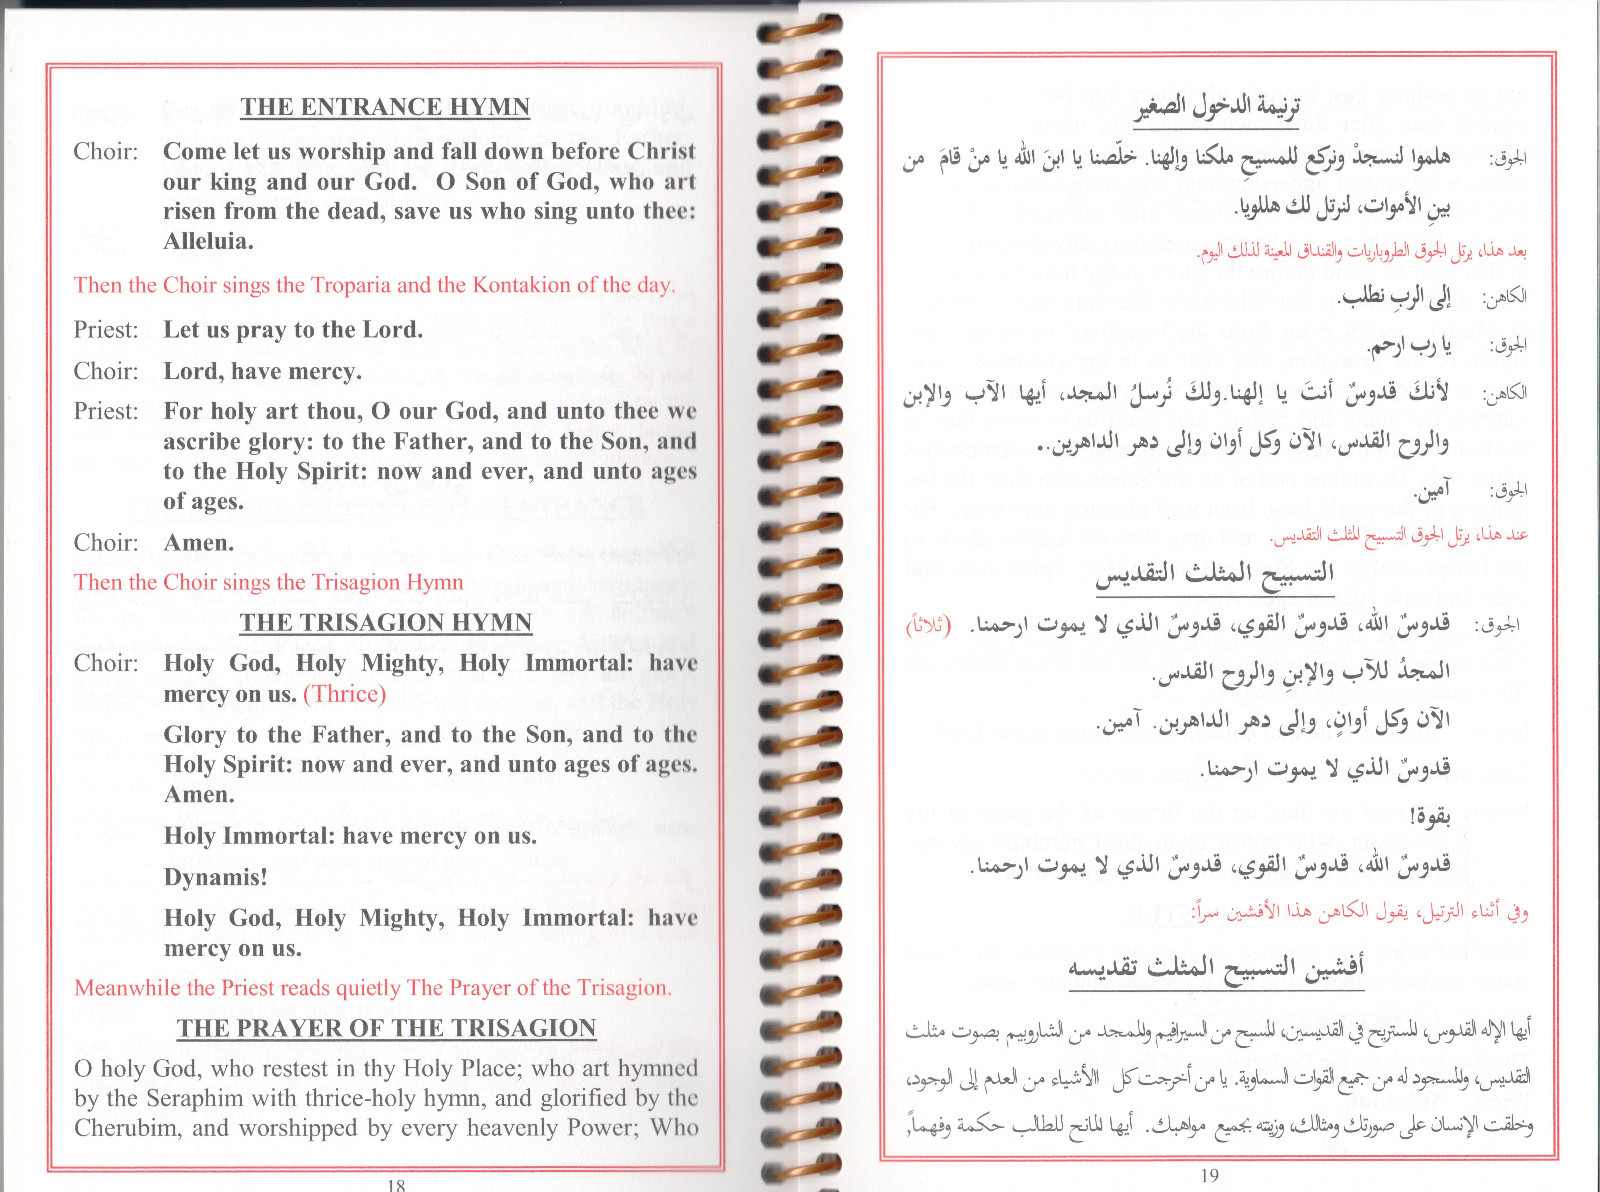 THE ENTRANCE HYMN
Choir: Come let us worship and fall down before Christ
our king and our God. O Son of God, who art
risen from the dead, save us who sing unto thee:
Alleluia.
Then the Choir sings the Troparia and the Kontakion of the day.
Priest: Let us pray to the Lord.
Choir: Lord, have mercy.
Priest: For holy art thou, O our God, and unto thee we
ascribe glory: to the Father, and to the Son, and
to the Holy Spirit: now and ever, and unto ages
of ages.
Choir: Amen.
Then the Choir sings the Trisagion Hymn
THE TRISAGION HYMN
Choir: Holy God, Holy Mighty, Holy Immortal: have
mercy on us. (Thrice)
Glory to the Father, and to the Son, and to the
Holy Spirit: now and ever, and unto ages of ages.
Amen.
Holy Immortal: have mercy on us.
Dynamis!
Holy God, Holy Mighty, Holy Immortal: have
mercy on us.
Meanwhile the Priest reads quietly The Prayer of the Trisagion.
THE PRAYER OF THE TRISAGION
O holy God, who restest in thy Holy Place; who art hymned
by the Seraphim with thrice-holy hymn, and glorified by the
Cherubim, and worshipped by every heavenly Power; Who
18
ترنيمة الدخول الصغير
الجوق: هلموا لنسجدْ ونركع للمسيح ملكنا وإلهنا. خلّصنا يا ابنَ الله يا منْ قامَ من
بينِ الأموات، لنرتل لك هللويا.
بعد هذا، يرتل الجوق الطروباريات والقنداق المعينة لذلك اليوم.
الكاهن: إلى الربِ نطلب.
الجوق: يا رب ارحم.
الكاهن: لأنكَ قدوسٌ أنتَ يا إلهنا.ولكَ نُرسلُ المجد، أيها الآب والإبن
والروح القدس، الآن وكل أوان وإلى دهر الداهرين..
الجوق: آمين.
عند هذا، يرتل الجوق التسبيح المثلث التقديس.
التسبيح المثلث التقديس
الجوق: قدوسٌ الله، قدوسٌ القوي، قدوسٌ الذي لا يموت ارحمنا. (ثلاثاً)
المجدُ للآب والإبنِ والروح القدس.
الآن وكل أوانٍ، وإلى دهر الداهرين. آمين.
قدوسٌ الذي لا يموت ارحمنا.
بقوة!
قدوسٌ الله، قدوسٌ القوي، قدوسٌ الذي لا يموت ارحمنا.
وفي أثناء الترتيل، يقول الكاهن هذا الأفشين سراً:
أفشين التسبيح المثلث تقديسه
أيها الإله القدوس، المستريح في القديسين، المسبح من السيرافيم والممجد من الشاروبيم بصوت مثلث
التقديس، والمسجود له من جميع القوات السماوية. يا من أخرجت كل الأشياء من العدم إلى الوجود،
وخلقت الإنسان على صورتك ومثالك، وزينته بجميع مواهبك. أيها المانح للطالب حكمة وفهماً,
19